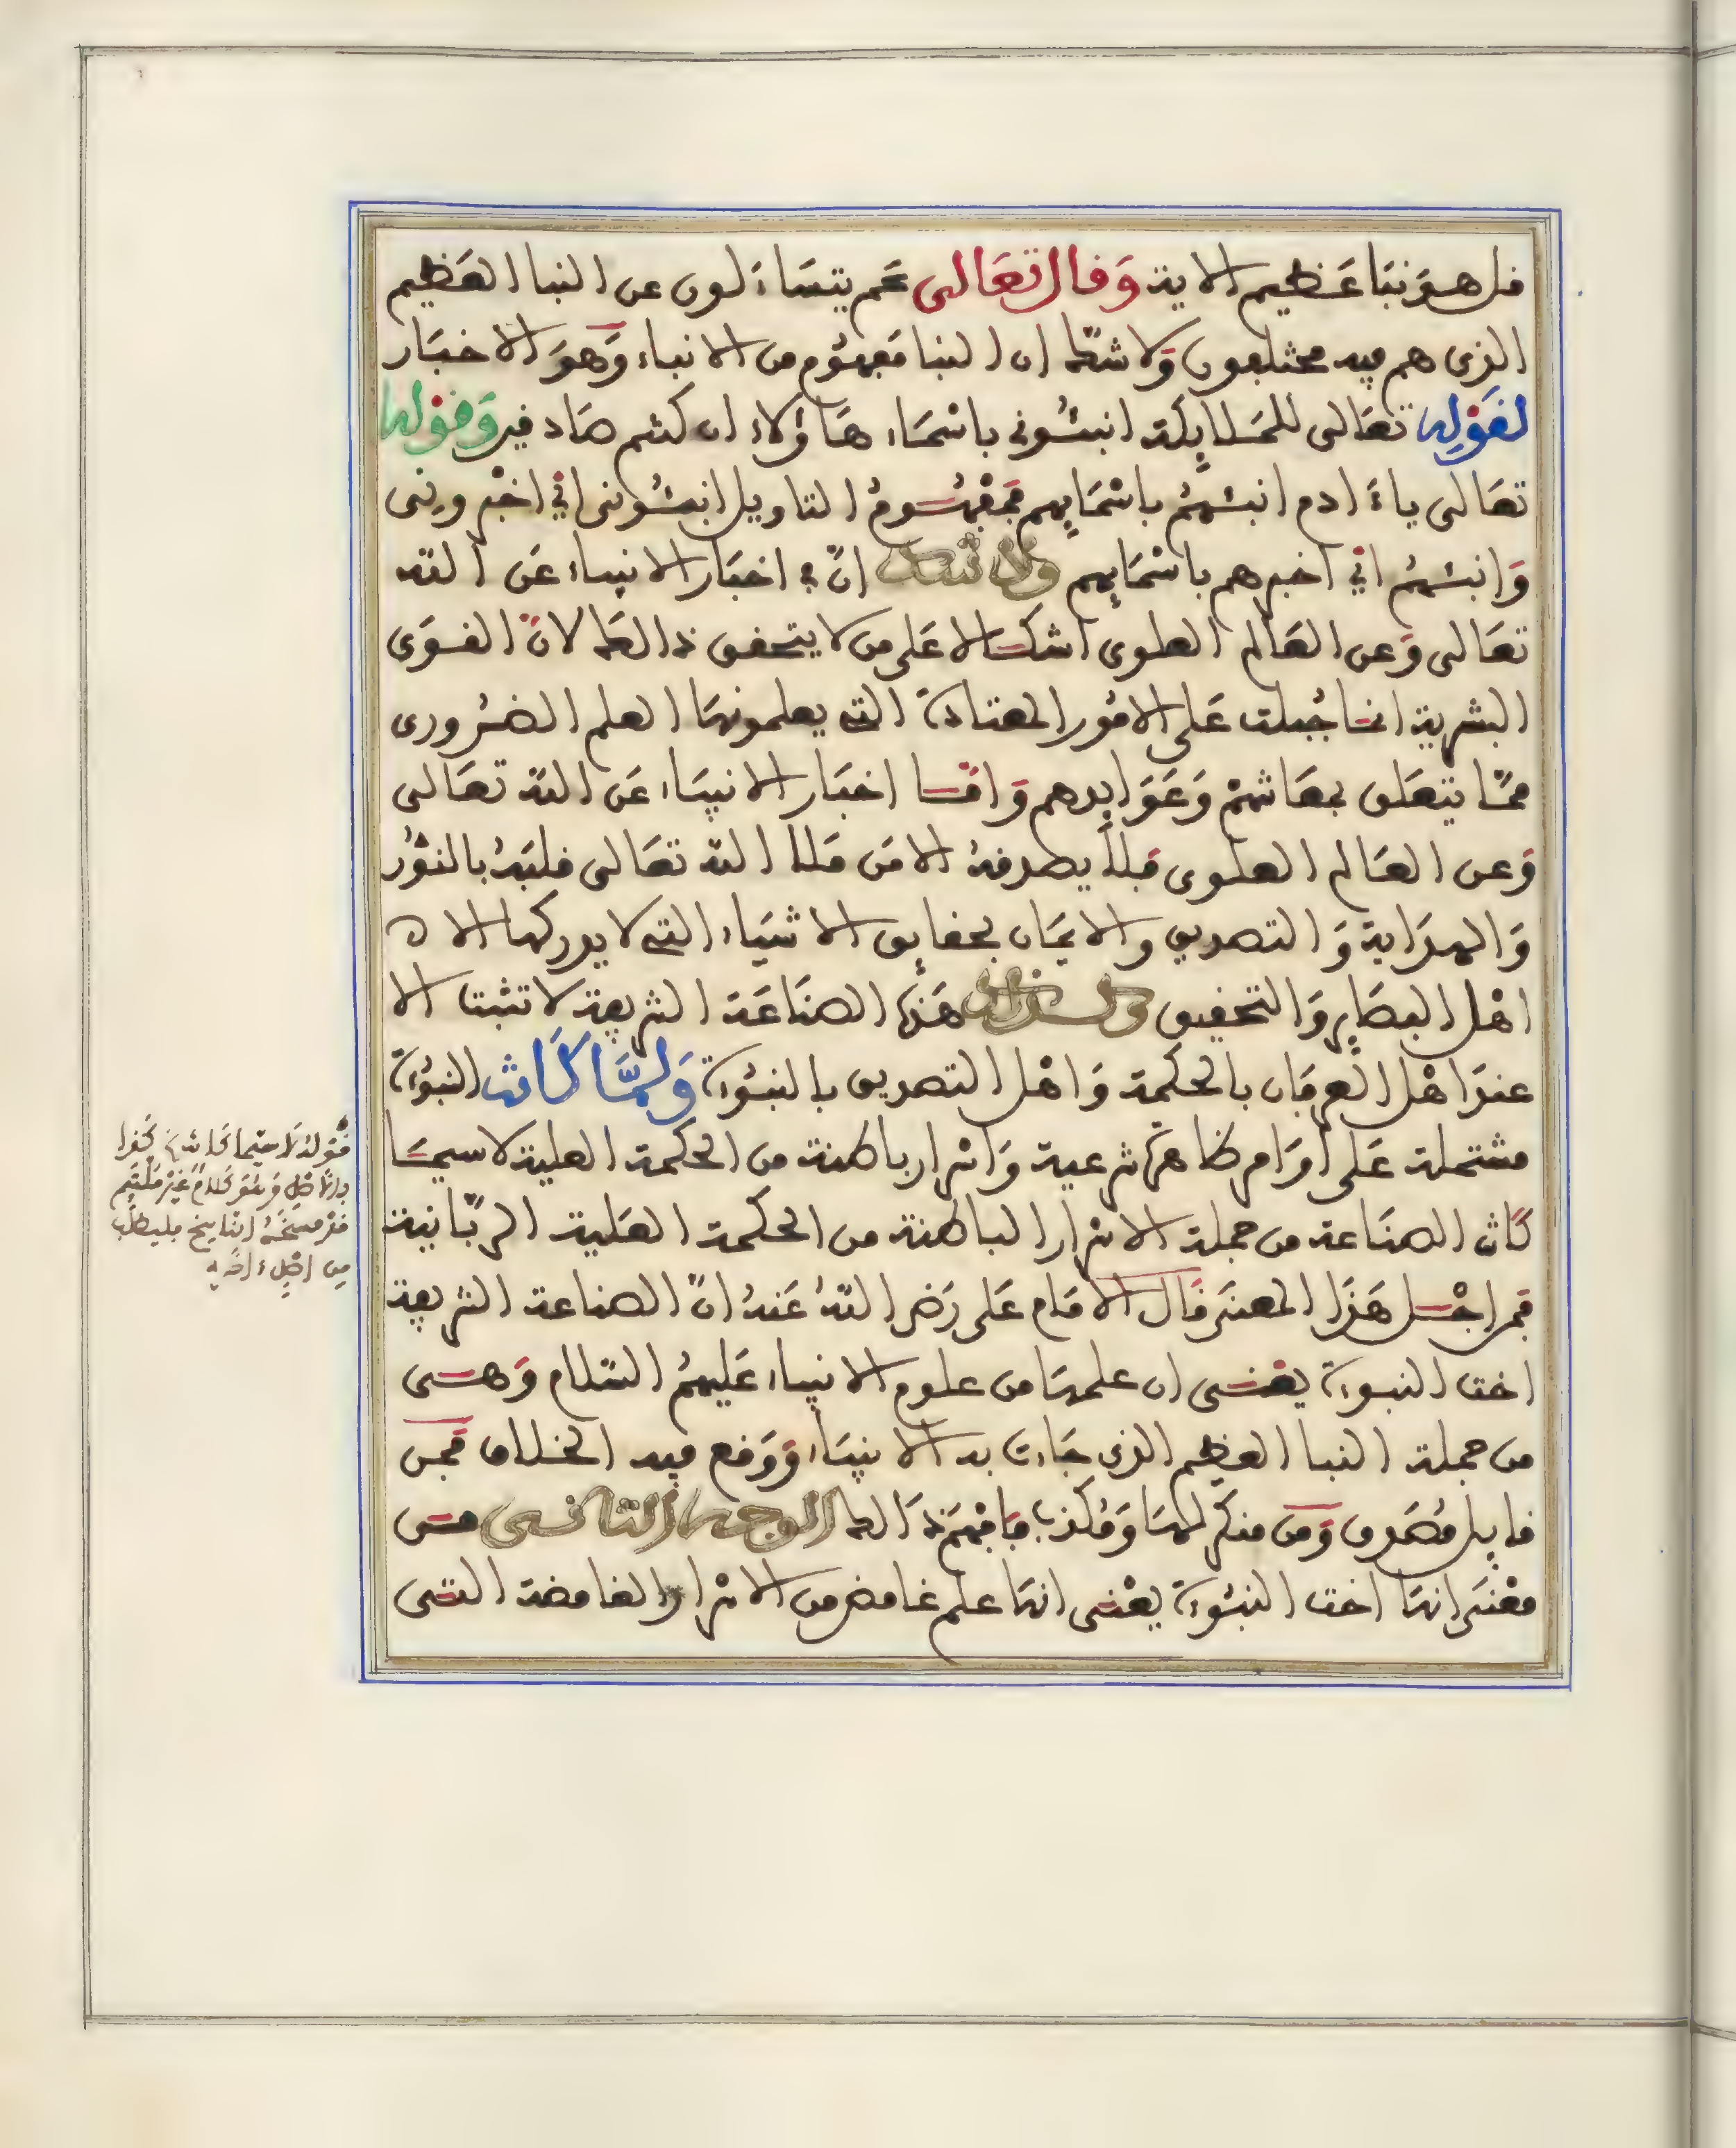 قل هو نبا عظيم الاية وقال تعالى عم يتساءلون عن النبا العظيم
الذى هم فيه مختلفون ولا شك ان النبا مفهوم من الانباء وهو الاخبار
لقوله تعالى للملايكة انبئونى باسماء هاؤلاء ان كنتم صادقين وقوله
تعالى ياءادم انبئهم باسمايهم فمفهوم التاويل انبئونى اي اخبرونى
وانبئهم اي اخبرهم باسمايهم ولا شك ان في اخبار الانبياء عن الله
تعالى وعن العالم العلوى اشكالا على من لا يتحقق ذالك لان القوى
البشرية انما جبلت على الامور المعتادة التى يعلمونها العلم الضرورى
مما يتعلق بمعاشهم وعوايدهم واما اخبار الانبياء عن الله تعالى
وعن العالم العلوى فلا يصدقه الا من ملا الله تعالى قلبه بالنور
والهداية والتصديق والايمان بحقايق الاشياء التى لا يدركها الا
اهل البصاير والتحقيق وكذالك هذه الصناعة الشريفة لا تثبت الا
عند اهل العرفان بالحكمة واهل التصديق بالنبوءة ولما كانت النبوءة
مشتملة على اوامر ظاهرة شرعية واسرار باطنة من الحكمة العلية لا سيما
كانت الصناعة من جملة الاسرار الباطنة من الحكمة العلية الربانية
فمن اجل هذا المعنى قال الامام على رضى الله عنه ان الصناعة الشريفة
اخت النبوءة يعنى ان علمها من علوم الانبياء عليهم السلام وهى
من جملة النبا العظيم الذى جاءت به الانبياء ووقع فيه الخلاف فمن
قايل مصدق ومن منكر لها ومكذب فافهم ذالك الوجه الثانى من
معنى انها اخت النبوءة يعنى انها علم غامض من الاسرار الغامضة التى
قوله لا سيما كانت كذا
بالاصل وهو كلام غير ملتيم
قد مسخه الناسخ فليطلب
من اصل ءاخر